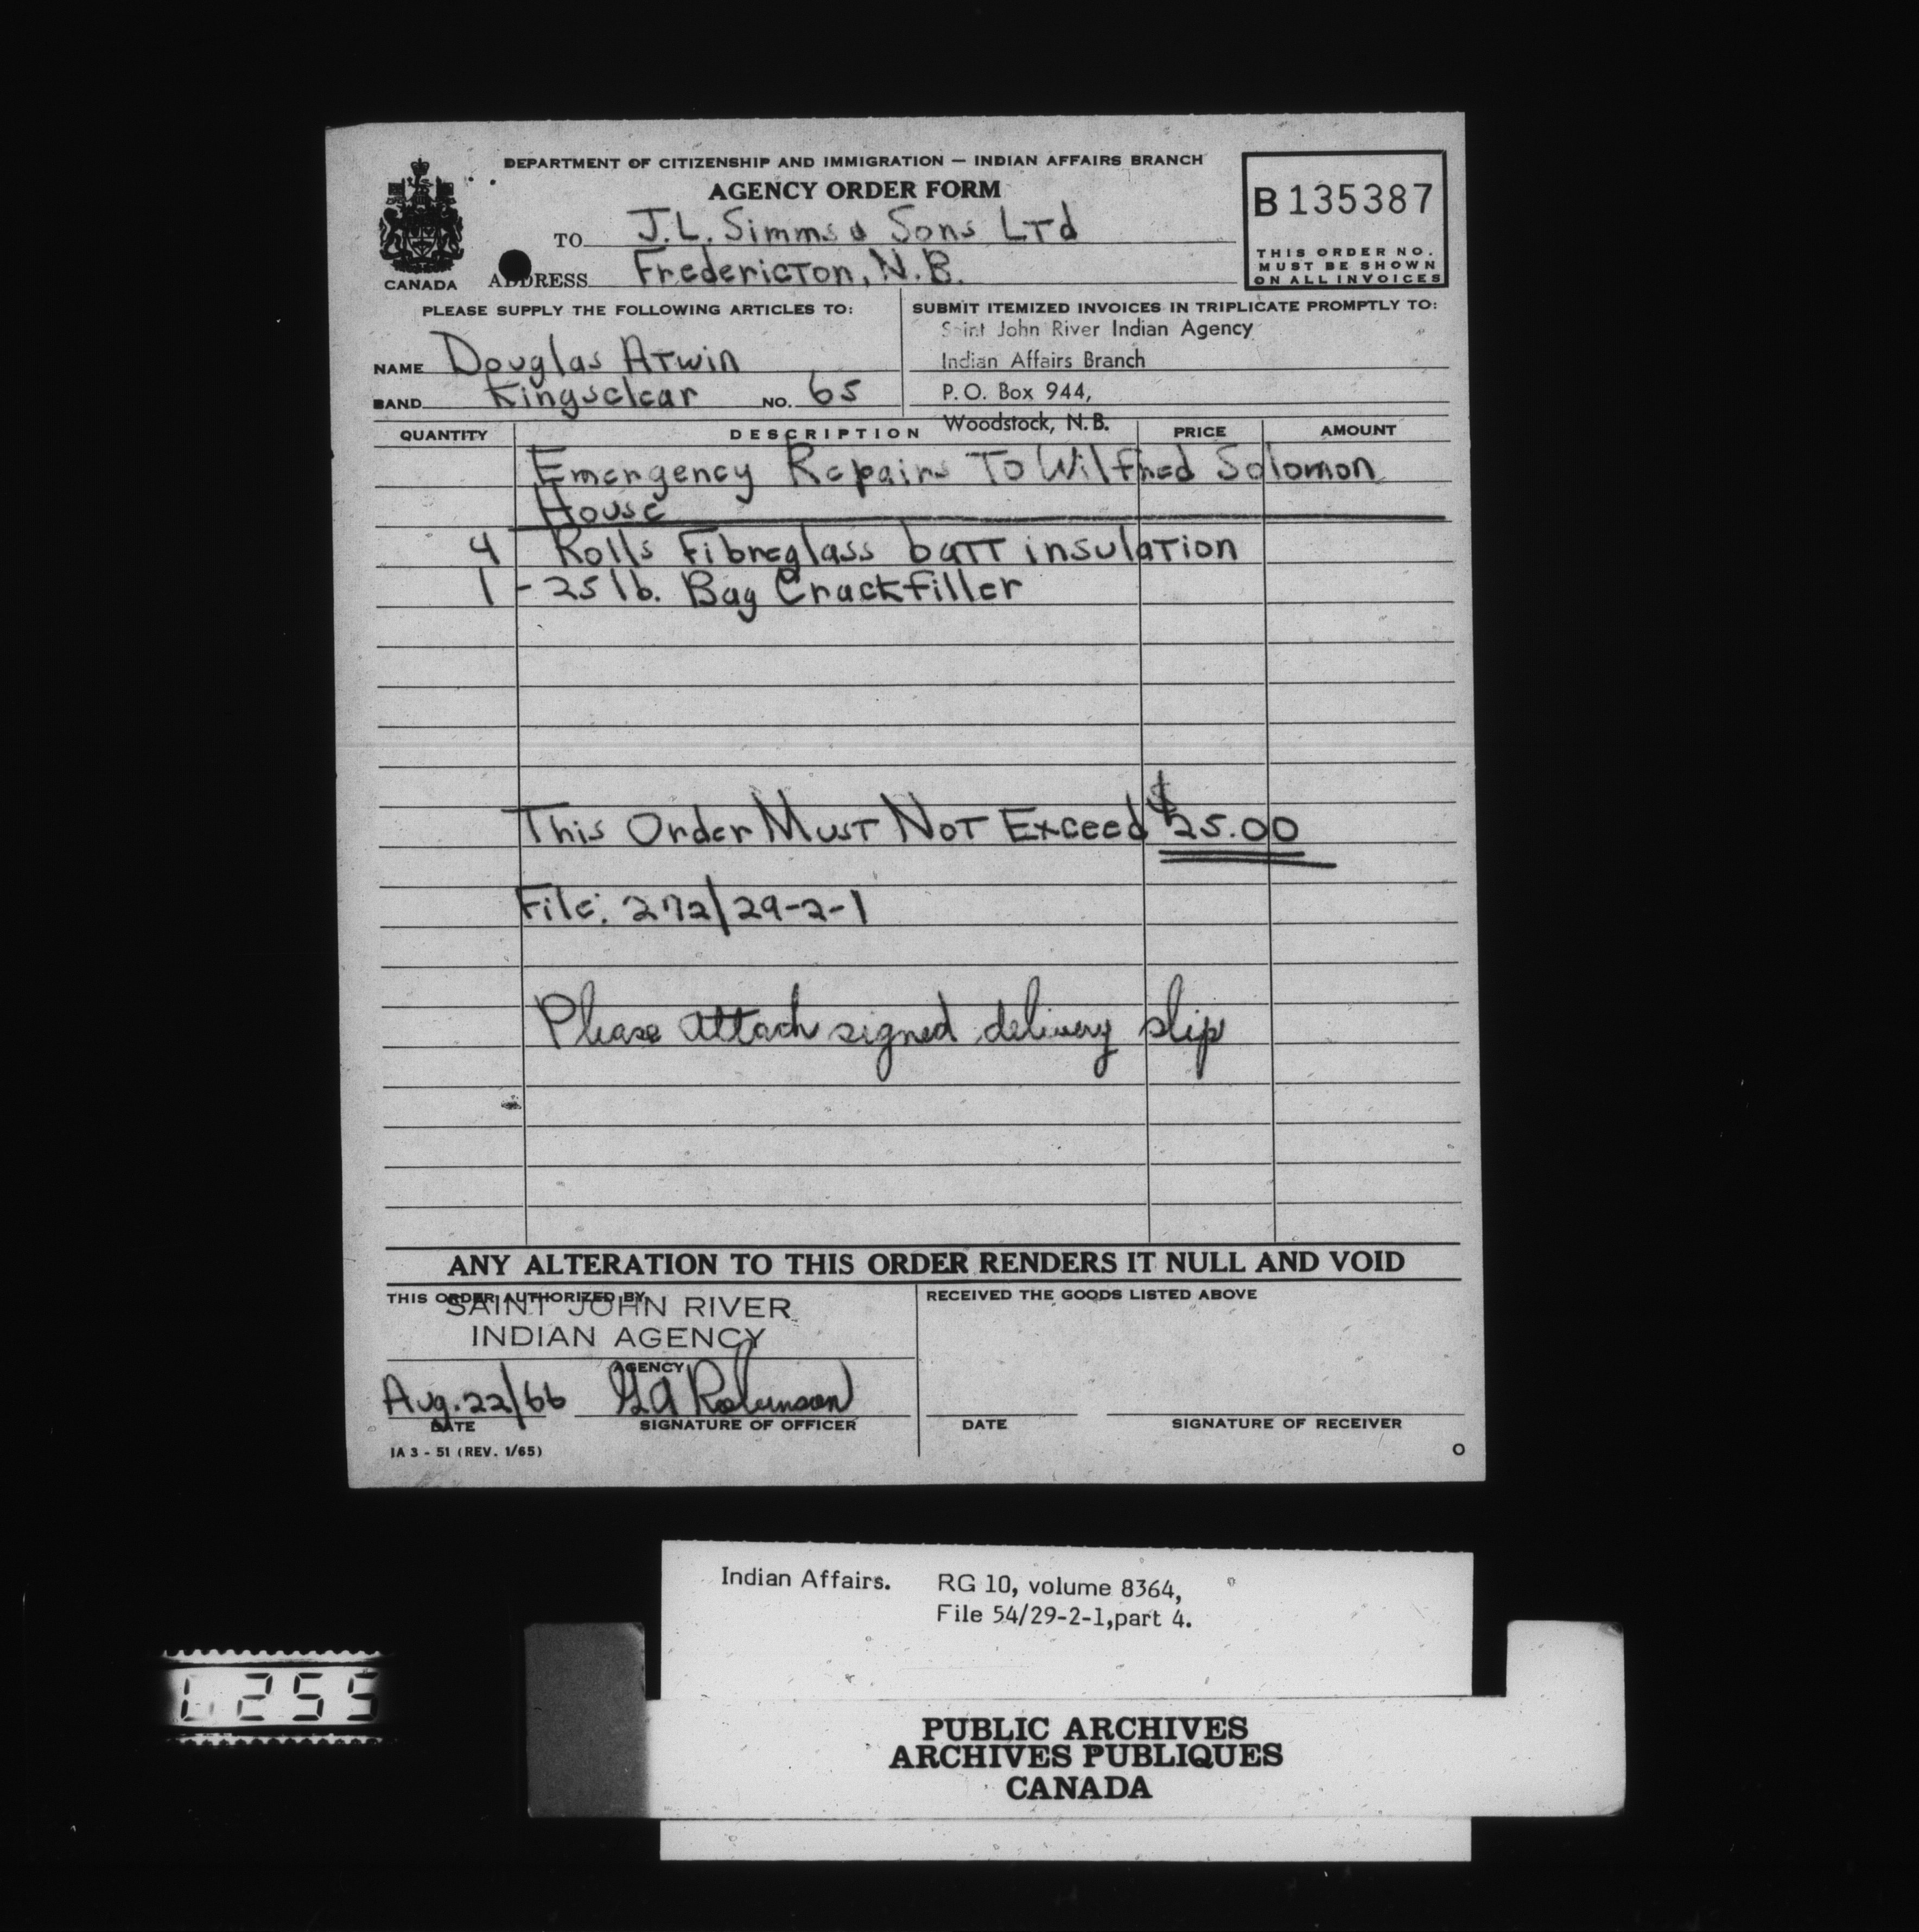 DEPARTMENT OF CITIZENSHIP AND IMMIGRATION — INDIAN AFFAIRS BRANCH
AGENCY ORDER FORM
B 135387
THIS ORDER NO.
MUST BE SHOWN
ON ALL INVOICES
CANADA
TO J.L. Simms & Sons LTd
ADDRESS Fredericton, N.B.
PLEASE SUPPLY THE FOLLOWING ARTICLES TO:
NAME Douglas Atwin
BAND Kingsclear NO. 65
SUBMIT ITEMIZED INVOICES IN TRIPLICATE PROMPTLY TO:
Saint John River Indian Agency
Indian Affairs Branch
P.O. Box 944,
Woodstock, N.B.
QUANTITY DESCRIPTION PRICE AMOUNT
Emergency Repairs To Wilfred Solomon
House
4 Rolls Fibreglass batt insulation
1 - 25 lb. Bag Crackfiller
This Order Must Not Exceed $25.00
File: 272/29-2-1
Please attach signed delivery slip
ANY ALTERATION TO THIS ORDER RENDERS IT NULL AND VOID
THIS ORDER AUTHORIZED BY
SAINT JOHN RIVER
INDIAN AGENCY
AGENCY
Aug. 22/66 GA Robinson
DATE SIGNATURE OF OFFICER
RECEIVED THE GOODS LISTED ABOVE
DATE SIGNATURE OF RECEIVER
IA 3 - 51 (REV. 1/65)
Indian Affairs. RG 10, volume 8364,
File 54/29-2-1,part 4.
255
PUBLIC ARCHIVES
ARCHIVES PUBLIQUES
CANADA